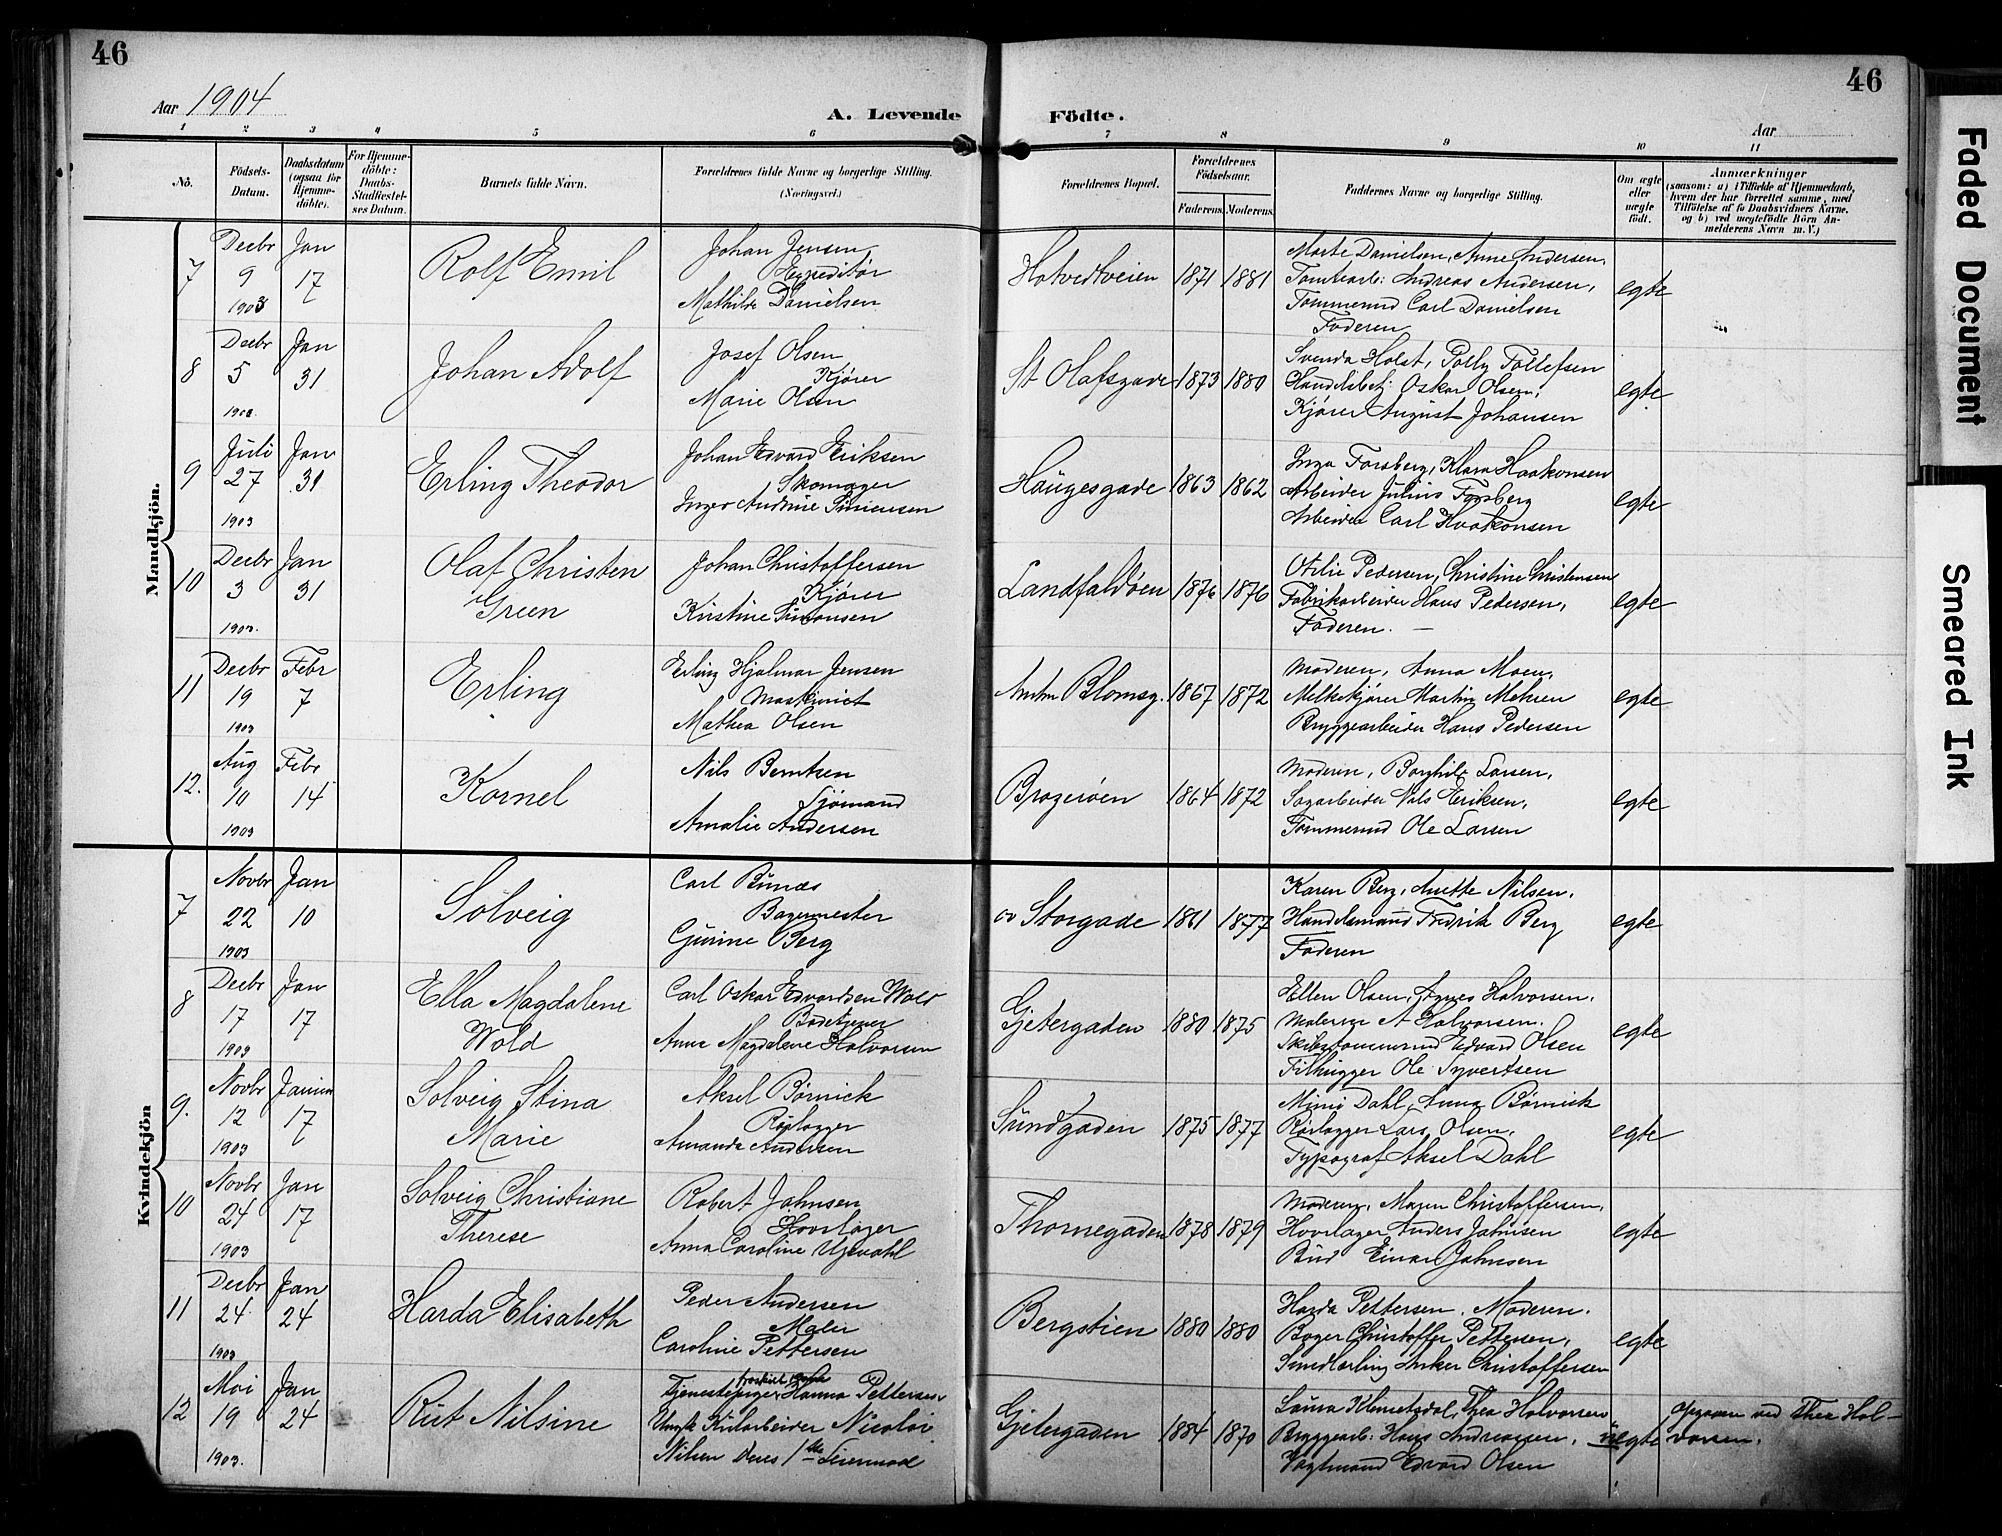 46
46
Aar 1904
A. Levende Födte.
Aar
1 2 3 4 5 6 7 8 9 10 11
No.
Födsels-Datum.
Daabsdatum (ogsaa for Hjemme-döbte).
For Hjemme-döbte: Daabs-Stadfæstel-ses Datum.
Barnets fulde Navn.
Forældrenes fulde Navne og borgerlige Stilling. (Næringsvei.)
Forældrenes Bopæl.
Forældrenes Födselsaar.
Faderens. Moderens.
Faddernes Navne og borgerlige Stilling.
Om ægte eller uægte födt.
Anmærkninger
(saasom: a) i Tilfælde af Hjemmedaab,
hvem der har forrettet samme, med
Tilföielse af to Daabsvidners Navne.
og b) ved uægtefödte Börn An-
melderens Navn m. V.)
Mandkjön.
7 Decbr 9 1903 Jan 17 Rolf Emil
Johan Jensen
Expeditør
Mathilde Danielsen
Hotvedtveien 1871 1881
Marte Danielsen, Anne Andersen,
Tomtearb: Andreas Andersen,
Tømmermd Carl Danielsen
Faderen
egte
8 Decbr 5 Jan 31 Johan Adolf
Josef Olsen
Kjører
Marie Olsen
St Olafsgade 1873 1880
Svenda Holst, Polly Tollefsen
Handelsbetj: Oskar Olsen,
Kjører August Johansen
egte
9 Juli 27 1903 Jan 31 Erling Theodor
Johan Edvard Eriksen
Skomager
Inger Andrine Simensen
Haugesgade 1863 1862
Inga Forsberg, Klara Haakonsen
Arbeider Julius Forsberg
Arbeider Carl Haakonsen
egte
10 Decbr 3 1903. Jan 31 Olaf Christen
Green
Johan Christoffersen
Kjører
Kristine Simonsen
Landfaldøen 1876 1876
Otilie Pedersen, Christine Christensen
Fabrikarbeider Hans Pedersen,
Faderen. —
egte
11 Decbr 19 1903 Febr 7 Erling
Erling Hjalmar Jensen
Maskinist
Mathea Olsen
Amtm Blomsg. 1867 1872
Moderen, Anna Moen,
Melkekjører Martin Mehren
Bryggearbeider Hans Pedersen
egte
12. Aug 10 1903 Febr 14 Kornel
Nils Berntsen
Sjømand
Amalie Andersen
Bragerøen 1864 1872
Moderen, Borghild Larsen,
Sagarbeider Nils Eriksen,
Tømmermd Ole Larsen
egte
Kvindekjön
7 Novbr 22 1903 Jan 10 Solveig
Carl
Bagermester
Gurine Berg
ov Storgade 1861 1877
Karen Berg, Anette Nilsen.
Handelsmand Fredrik Berg
Faderen
egte
8 Decbr 17 1903 Jan 17 Ella Magdalene
Wold
Carl Oskar Edvardsen Wold
Anna Magdalene Halvorsen
Gjetergaden 1880 1875
Ellen Olsen, Agnes Halvorsen.
A Halvorsen.
Skibstømmermd Edvard Olsen
Filhugger Ole Syvertsen
egte
9. Novbr 12 1903 Januar 17 Solveig Stina
Marie
Aksel Børnick
Rørlægger
Amanda Andersen
Sundgaden 1875 1877
Mimi Dahl, Anna Børnick
Rørlægger Lars Olsen,
Typograf Aksel Dahl
egte
10 Novbr 24 1903 Jan 17 Solveig Christiane
Therese
Robert Jahnsen
Hovslager
Anna Caroline
Thornegaden 1878 1879
Moderen, Maren Christoffersen,
Hovslager Anders Jahnsen
Bud Einar Jahnsen
egte
11 Decbr 24 1903 Jan 24 Harda Elisabeth
Peder Andersen
Maler
Caroline Pettersen
Bergstien 1880 1880
Harda Pettersen, Moderen.
Bager Christoffer Pettersen,
Anker Christoffersen
egte
12 Mai 19 1903. Jan 24 Rut Nilsine
Tjenestepige Hanna Pettersen
Ungk Kularbeider Nicolai
Nilsen Deres 1ste Leiermaal
Gjetergaden 1884 1870
Laura Klemetsdal, Thea Halvorsen
Bryggearb: Hans Andreassen,
Vagtmand Edvard Olsen
uegte
Opgaven ved Thea Hal-
vorsen.
Faded Document
Smeared Ink